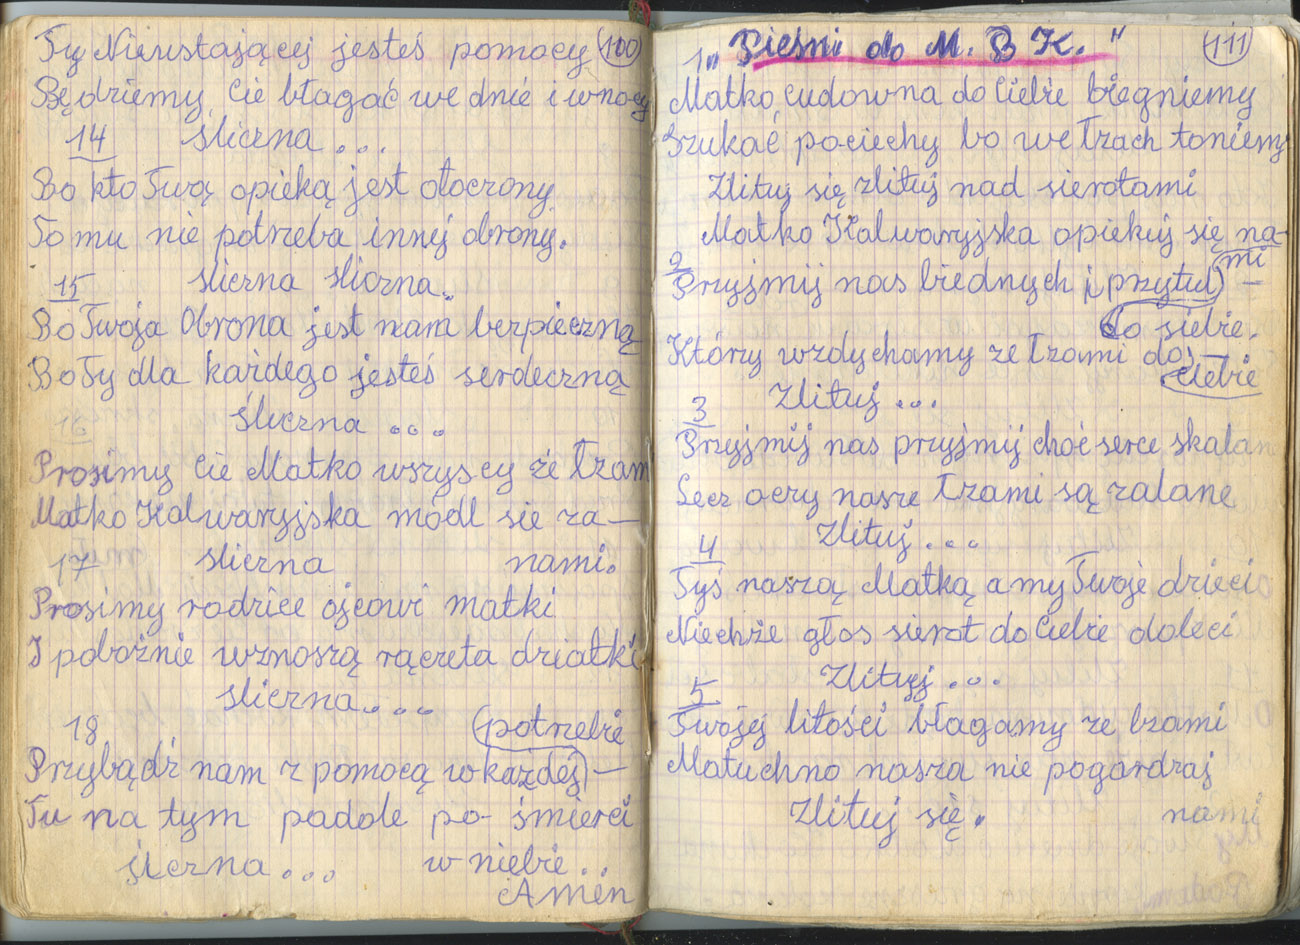 Ty Nieustającej jesteś pomocy (100)
Będziemy Cie błagać we dnie i w nocy
14 śliczna...
Bo kto Twą opieką jest otoczony
To mu nie potrzeba innij obrony.
15 śliczna śliczna.
Bo Twoja Obrona jest nam bezpieczną
Bo Ty dla każdego jesteś serdeczną
16 Śliczna ...
Prosimy Cie Matko wszyscy ze łzam
Matko Kalwaryjska módl sie za—
17 sliczna nami.
Prosimy rodzice ojcowi matki
I pobożnie wznoszą rączeta dziatki
śliczna....
18 (potrzebie
Przybądź nam z pomocą w każdej) —
Tu na tym padole po- śmierci
śliczna... w niebie..
Amen
1 „Pieśni do M. B K." (111)
Matko cudowna do Ciebie biegniemy
Szukać pociechy bo we łzach toniemy
Zlituj się zlituj nad sierotami
Matko Kalwaryjska opiekuj się na-
2 mi
Przyjmij nas biednych i przytul) —
do siebie.
Którzy wzdychamy ze łzami do
Ciebie
Zlituj...
3
Przyjmij nas przyjmij choć serce skalan
Lecz oczy nasze łzami są zalane
Zlituj...
4
Tyś naszą Matką a my Twoje dzieci
Niechże głos sierot do Ciebie doleci
Zlituj...
5
Twojej litości błagamy ze łzami
Matuchno nasza nie pogardzaj
Zlituj się. nami